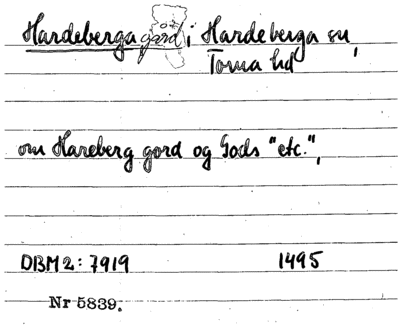 Hardeberga gård i Hardeberga sn,
Torna hd
om Hareberg gord og Gods "etc.",
DBM2: 7919 1495
Nr 5839.